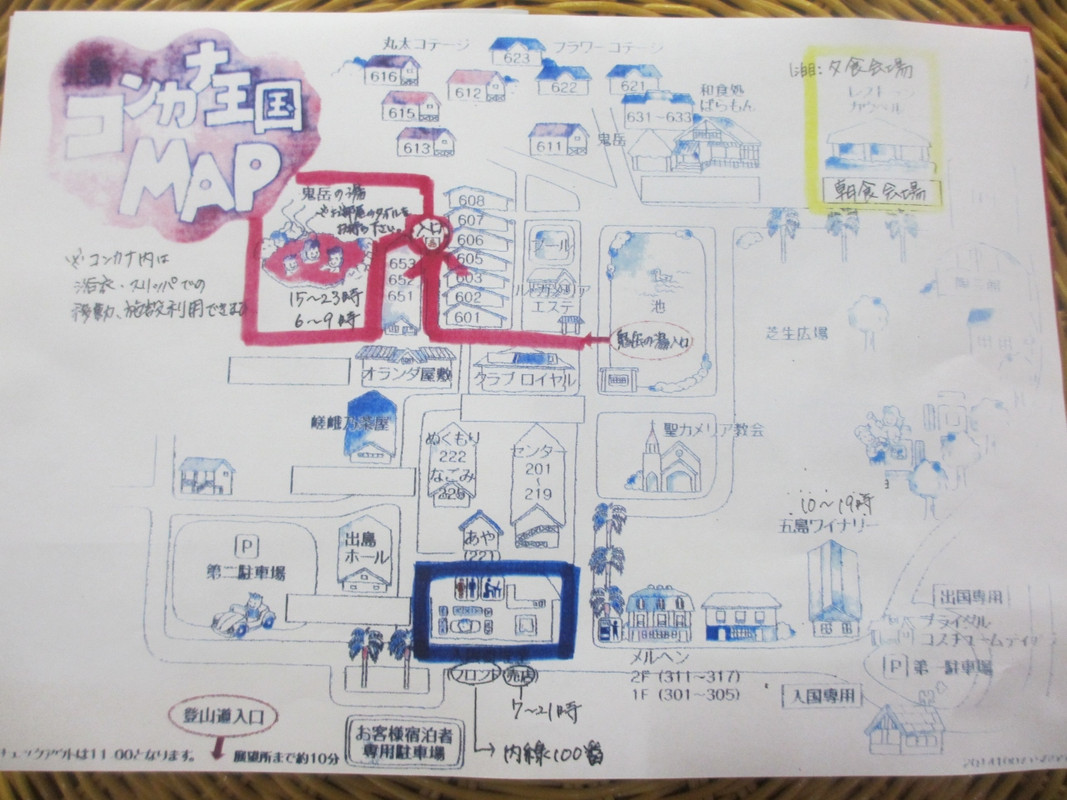 コンカナ王国
MAP
丸太コテージ
フラワーコテージ
616
615
613
612
611
623
622
621
631~633
和食処
ぱらもん
鬼岳
夕食会場
朝食会場
鬼岳の湯
15~23時
6~9時
入口
※コンカナ内は
浴衣・スリッパでの
移動、施設利用できます
608
607
606
605
603
602
601
653
652
651
プール
エステ
池
鬼岳の湯入口
芝生広場
オランダ屋敷
クラブ ロイヤル
嵯峨乃茶屋
ぬくもり
222
なごみ
223
センター
201
~
219
聖カメリア教会
10~19時
五島ワイナリー
あや
(221)
出島
ホール
P
第二駐車場
出国専用
ブライダル
P 第一駐車場
入国専用
メルヘン
2F (311~317)
1F (301~305)
フロント
売店
7~21時
内線100番
登山道入口
展望所まで約10分
お客様宿泊者
専用駐車場
チェックアウトは11:00となります。